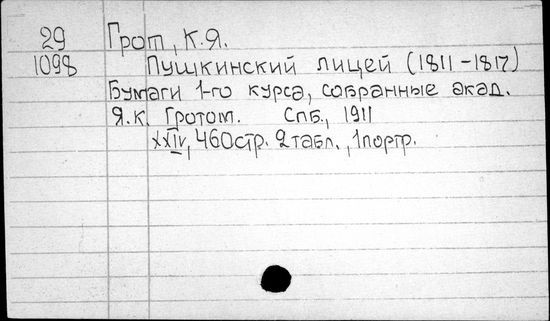 29 Грот, К.Я.
1098 Пушкинский лицей (1811-1817)
Бумаги 1-го курса, собранные акад.
Я.К. Гротом. Спб., 1911
XXIV, 460стр. 2 табл., 1 портр.